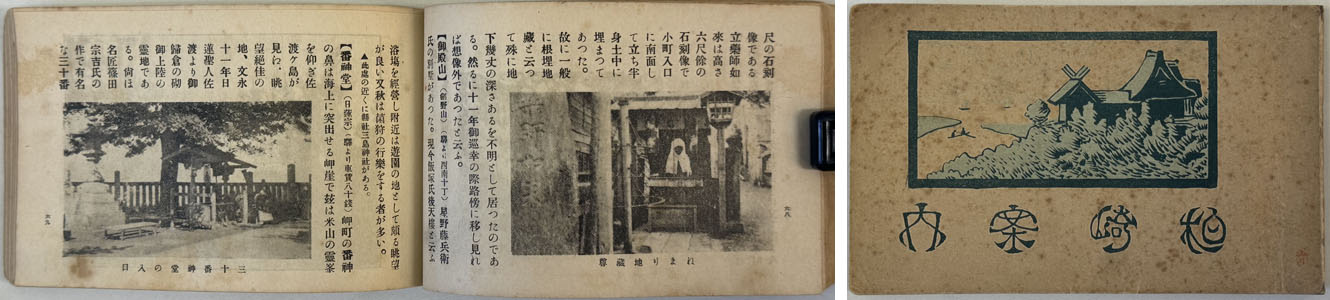 尺の石刻
像である
立藥師如
來は高さ
六尺餘の
石刻像で
小町入口
に南面し
て立ち半
身土中に
埋まつて
あつた。
故に一般
に根埋地
藏と云つ
て殊に地
下幾丈の深さあるを不明として居つたのであ
る。然るに十一年御巡幸の際路傍に移し見れ
ば想像外であつたと云ふ。
【御殿山】(劍野山)(驛より西南十丁)星野藤兵衛
氏の別墅があつた。現今飯塚氏幾天樓と云ふ
ねまり地藏尊
六八
浴塲を經營し附近は遊園の地として頗る眺望
が良い又秋は菌狩の行樂をする者が多い。
▲此處の近くに縣社三島神社がある。
【番神堂】(日蓮宗)(驛より車賃八十錢)岬町の番神
の鼻は海上に突出せる岬崖で玆は米山の靈峯
を仰ぎ佐
渡ケ島が
見わ、眺
望絕佳の
地、文永
十一年日
蓮聖人佐
渡より御
歸倉の砌
御上陸の
靈地であ
る。尙ほ
名匠篠田
宗吉氏の
作で有名
な三十番
三十番神堂の入口
六九
柏崎案内